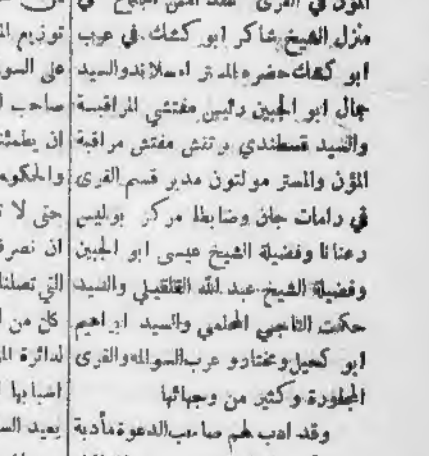 المؤن في القرى
منزل الشيخ شاكر ابو كشك في عرب
ابو كشك حضره المستر والسيد
جمال ابو الجبين رئيس مفتشي المراقبة
والسيد قسطندي برتنش مفتش مراقبة
المؤن والمستر مولتون مدير قسم القرى
في رامات جان وضابط مركز بوليس
رعنانا وفضيلة الشيخ عيسى ابو الجبين
وفضيلة الشيخ عبد الله القلقيلي والسيد
حكمت التاجي المحامي والسيد ابراهيم
ابو كحيل ومختارو عرب السوالمه والقرى
المجاورة وكثير من وجهائها
وقد ادب لهم صاحب الدعوة مأدبة
توزيع
على
صاحب
ان يطمئن
والحكومة
حتى لا
ان نصرف
التي تصلنا
كل من
لدائرة
اصبابها
يعيد